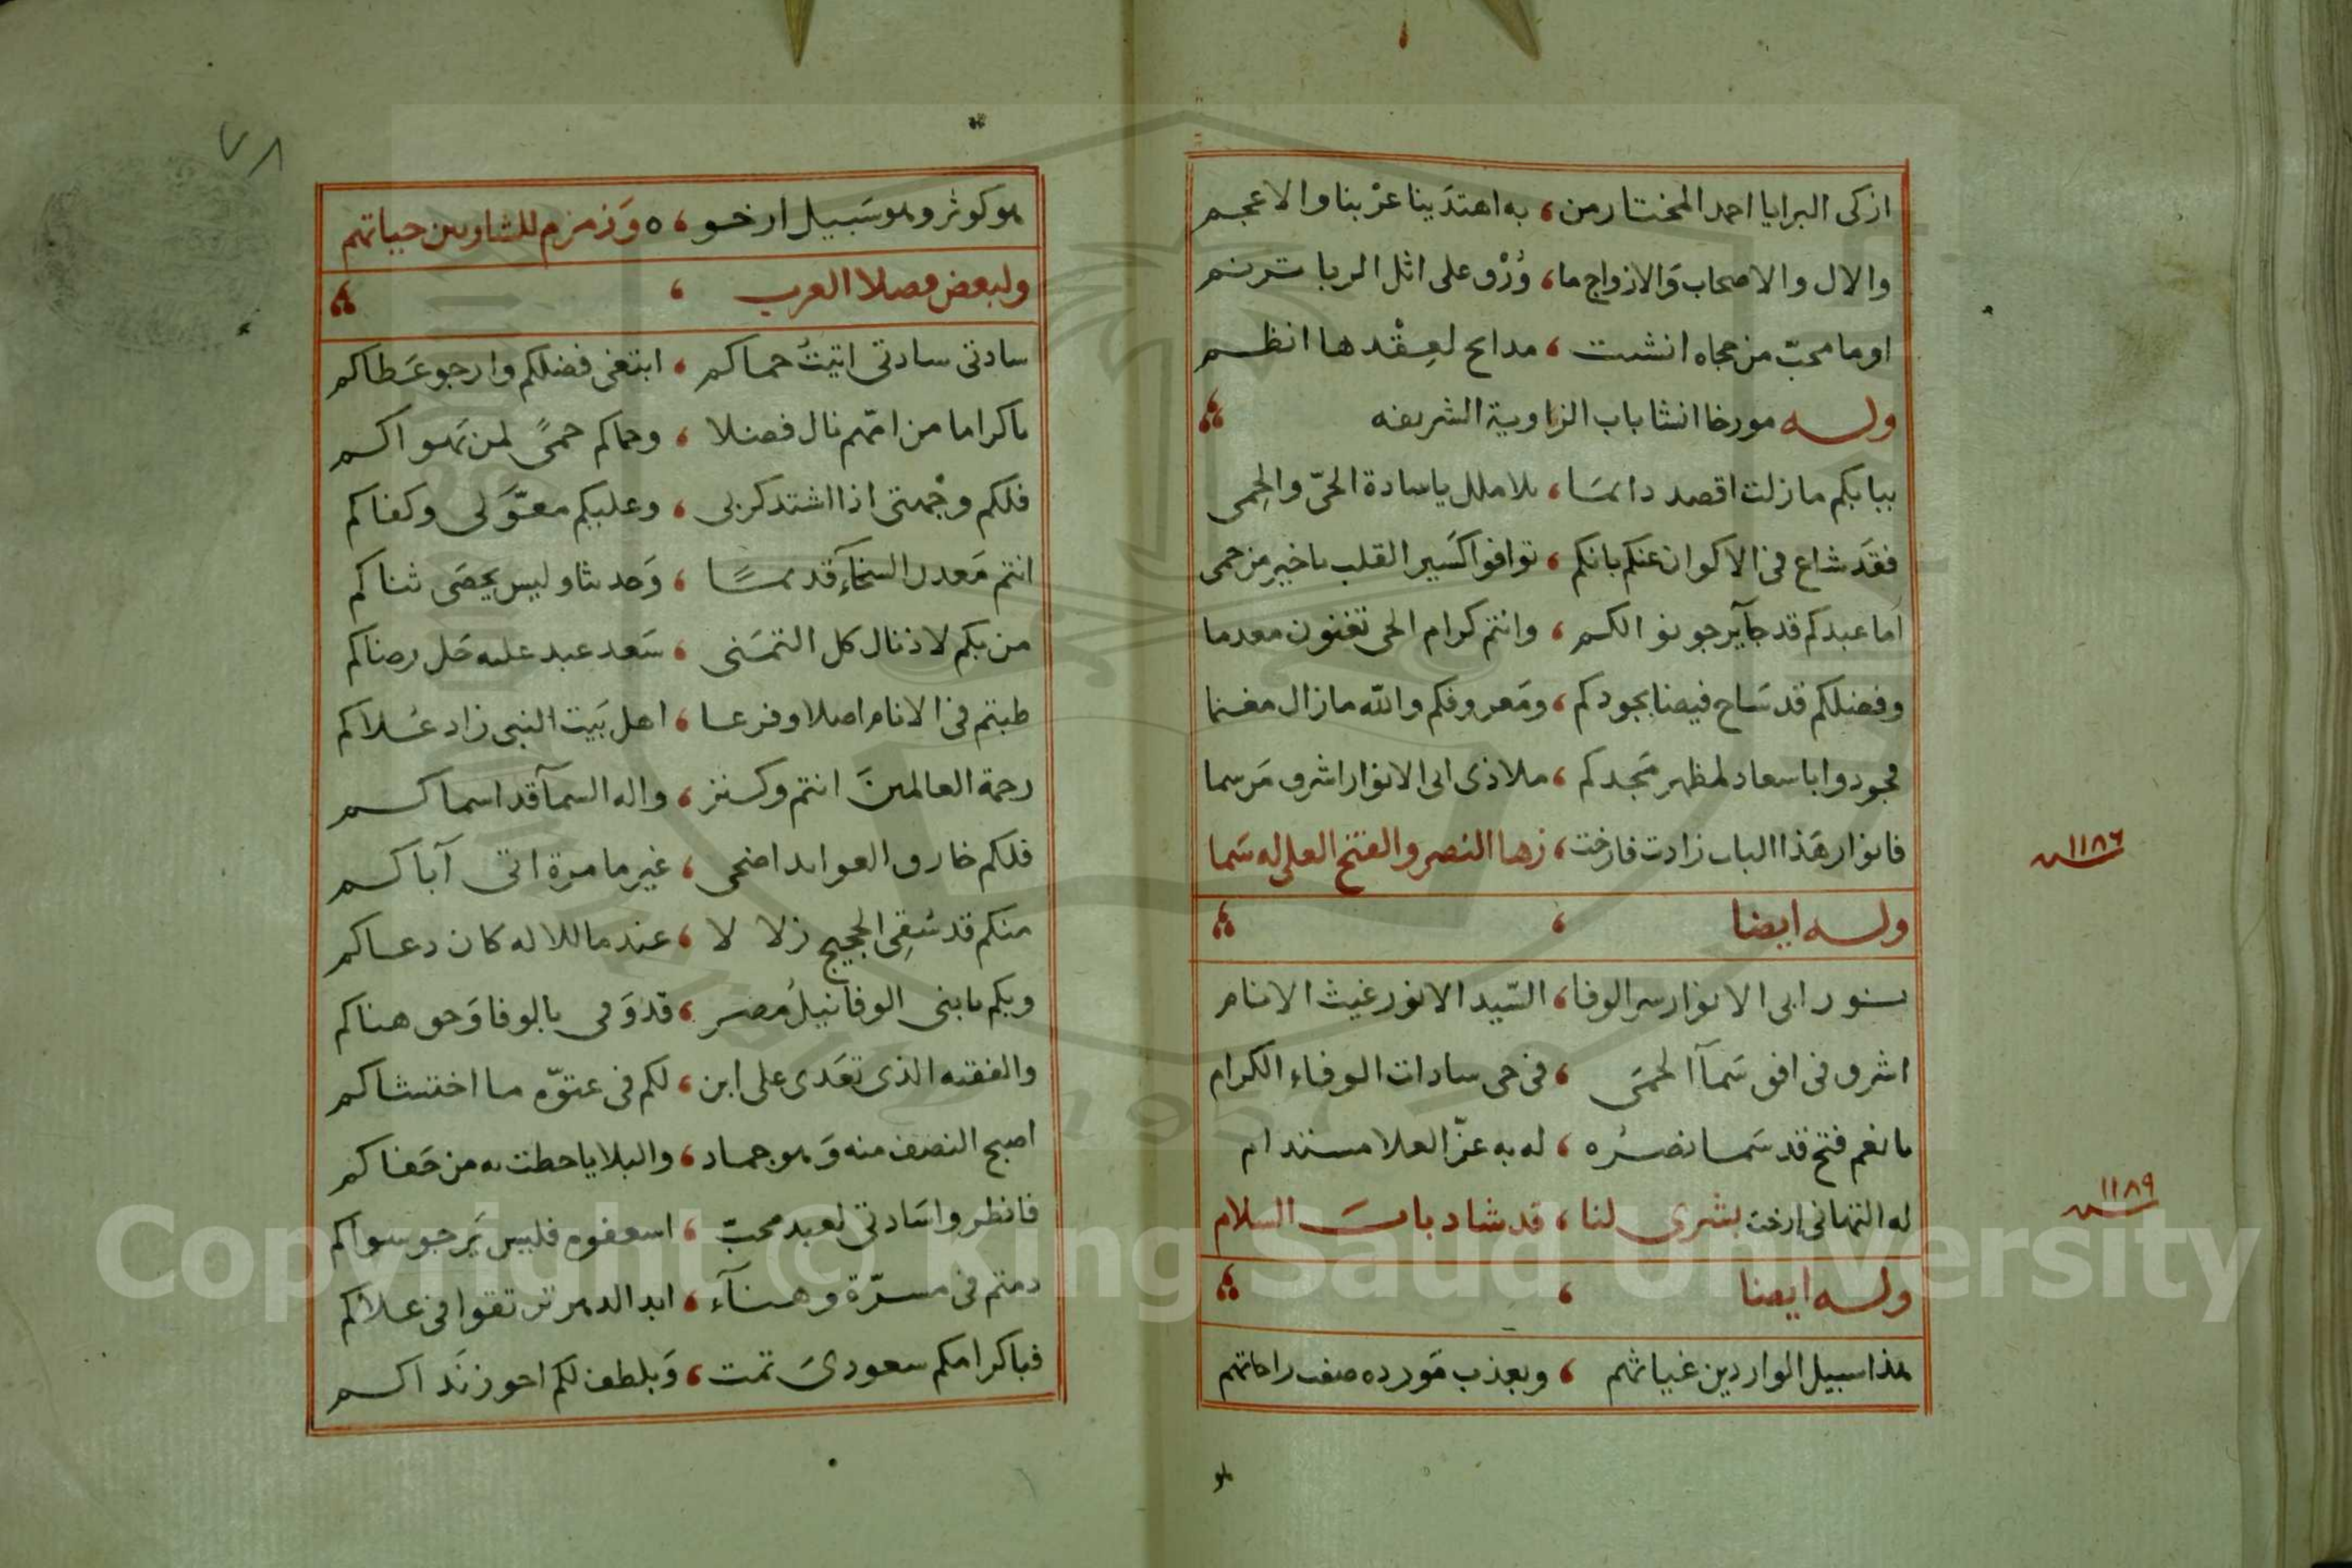 ازكى البرايا احمد المختار من ، به اهتدَينا عرْبنا والاعجم
والال والاصحاب وَالازواج ما ، وُرْق على اثل الربا ترنم
او ما محبّ من مجاه انشت ، مدايح لعِقْدها انظم
وله مورخا انشا باب الزاوية الشريفه
ببابكم ما زلت اقصد دائمًا ، بلا ملل يا سادة الحيّ والحِمى
فقَد شاع فى الاكوان عنكم بانكم ، توافوا كسَير القلب يا خير من حمى
اما عبدكم قد جآ يرجو نوالكم ، وانتم كرام الحى تغنون معدما
وفضلكم قد سَاح فيضا بجودكم ، ومَعروفكم والله ما زال مغنما
فجودوا باسعاد لمظهر مَجدكم ، ملاذى ابى الانوار اشرف مَن سما
فانوار هَذا الباب زادت فارخت ، زها النصر والفتح العلى له سَما
١١٨٦ سنه
وله ايضا
بنور ابى الانوار سر الوفا ، السّيد الانور غيث الانام
اشرق فى افق سَمآ الحمَى ، فى حى سادات الوفاء الكرام
يا نعم فتح قد سَما نصرُه ، له به عزّ العلا مستدام
له التهانى ارخت بشرى لنا ، قد شاد بابَ السلام
١١٨٩ سنه
وله ايضا
هذا سبيل الواردين غياثهم ، وبعذب مَورده صفت راحاتهم
هو
٧٨
هو كوثر وهو سَبيل ارخو ، ٥ وَزمزم للشاربين حياتهم
ولبعض فضلا العرب
سادتى سادتى اتيتُ حماكم ، ابتغى فضلكم وارجو عَطاكم
يا كراما من امّهم نال فضلا ، وحماكم حمىً لمن يَهواكم
فلكم وجْهتى اذا اشتد كربى ، وعليكم معوَّلى وكفاكم
انتم مَعدن السخآء قديمًا ، وَحديثا وليس يحصَى ثناكم
من بكم لاذ نال كل التمَنى ، سَعد عبد عليه حَل رضاكم
طبتم فى الانام اصلا وفرعا ، اهل بَيت النبى زاد عُلاكم
رحمة العالمينَ انتم وكنز ، واله السمآ قد اسماكم
فلكم خارق العوايد اضحى ، غير ما مرة اتى آباكم
منكم قد سُقِى الحجيج زلالا ، عندما للاله كان دعاكم
وبكم يا بنى الوفا نيلُ مصر ، قد وَفى بالوفا وَحق هناكم
والفقيه الذى تعَدى على ابن ، لكم فى عتوّه ما اختشاكم
اصبح النصف منه وَهو جماد ، والبلايا حطت به من جَفاكم
فانظروا سَادتى لعبد محبّ ، اسعفوه فليس يَرجو سواكم
دمتم فى مسرّة وهنآء ، ابد الدهر ترتقوا فى علاكم
فباكرامكم سعودىَ تمت ، وَبلطف لكم احوز نَداكم
Copyright © King Saud University